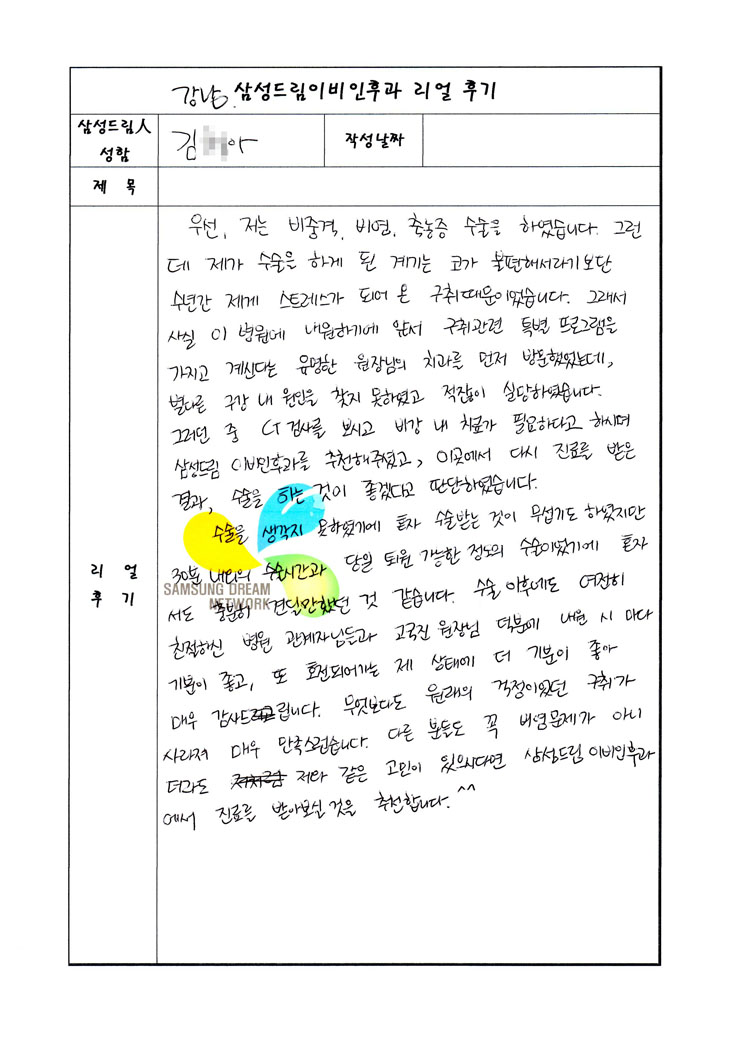 강남 삼성드림이비인후과 리얼 후기
삼성드림人 성함
김 아
작성날짜
제 목
리 얼 후 기
우선, 저는 비중격, 비염, 축농증 수술을 하였습니다. 그런
데 제가 수술을 하게 된 계기는 코가 불편해서라기보단
수년간 제게 스트레스가 되어 온 구취때문이었습니다. 그래서
사실 이 병원에 내원하기에 앞서 구취관련 특별 프로그램을
가지고 계신다는 유명한 원장님의 치과를 먼저 방문했었는데,
별다른 구강 내 원인을 찾지 못하였고 적잖이 실망하였습니다.
그러던 중 CT검사를 보시고 비강 내 치료가 필요하다고 하시며
삼성드림 이비인후과를 추천해주셨고, 이곳에서 다시 진료를 받은
결과, 수술을 하는 것이 좋겠다고 판단하였습니다.
수술을 생각지 못하였기에 혼자 수술받는 것이 무섭기도 하였지만
30분 내외의 수술시간과 당일 퇴원 가능한 정도의 수술이었기에 혼자
서도 충분히 견딜만했던 것 같습니다. 수술 이후에도 여전히
친절하신 병원 관계자님들과 고국진 원장님 덕분에 내원 시 마다
기분이 좋고, 또 호전되어가는 제 상태에 더 기분이 좋아
매우 감사드립니다. 무엇보다도 원래의 걱정이었던 구취가
사라져 매우 만족스럽습니다. 다른 분들도 꼭 비염문제가 아니
더라도 저와 같은 고민이 있으시다면 삼성드림 이비인후과
에서 진료를 받아보실 것을 추천합니다.^^
SAMSUNG DREAM
NETWORK